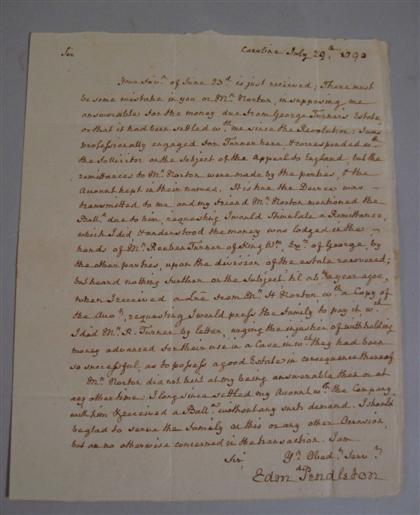 Caroline July 29th 1790
Sir
Your favr. of June 23d is just received; There must
be some mistake in you or Mr. Norton, in supposing me
answerable for the money due from George Turner's Estate,
or that it had been settled wth me since the Revolution; I was
professionally engaged for Turner here & corresponded wth
the Sollicitor on the Subject of the Appeal to England, but the
remittances to Mr. Norton were made by the parties, & the
Account kept in their names. It is true the Decree was
transmitted to me, and my friend Mr. Norton mentioned the
Balle. due to him, requesting I would stimulate a Remittance,
which I did & understood the money was lodged in the
hands of Mr. Reuben Turner of King Wm. Exr. of George, by
the other parties, upon the division of the estate recovered;
but heard nothing further on the Subject til abt a year ago,
when I received a Lre from Mr. H Norton wth a Copy of
the Accot, requesting I would press the family to pay it wch
I did Mr. R. Turner by letter, urging the injustice of withholding
money advanced for their use in a Case in wch they had been
so successful, as to possess a good Estate in consequence thereof
Mr. Norton did not hint at my being answerable then or at
any other time; I long since settled my Account wth the Company
with him & received a Balle. without any such demand. I should
be glad to serve the family on this or any other Occasion,
but am no otherwise concerned in the transaction. I am
Sir Yr. Obedt. Servt.
Edmd Pendleton